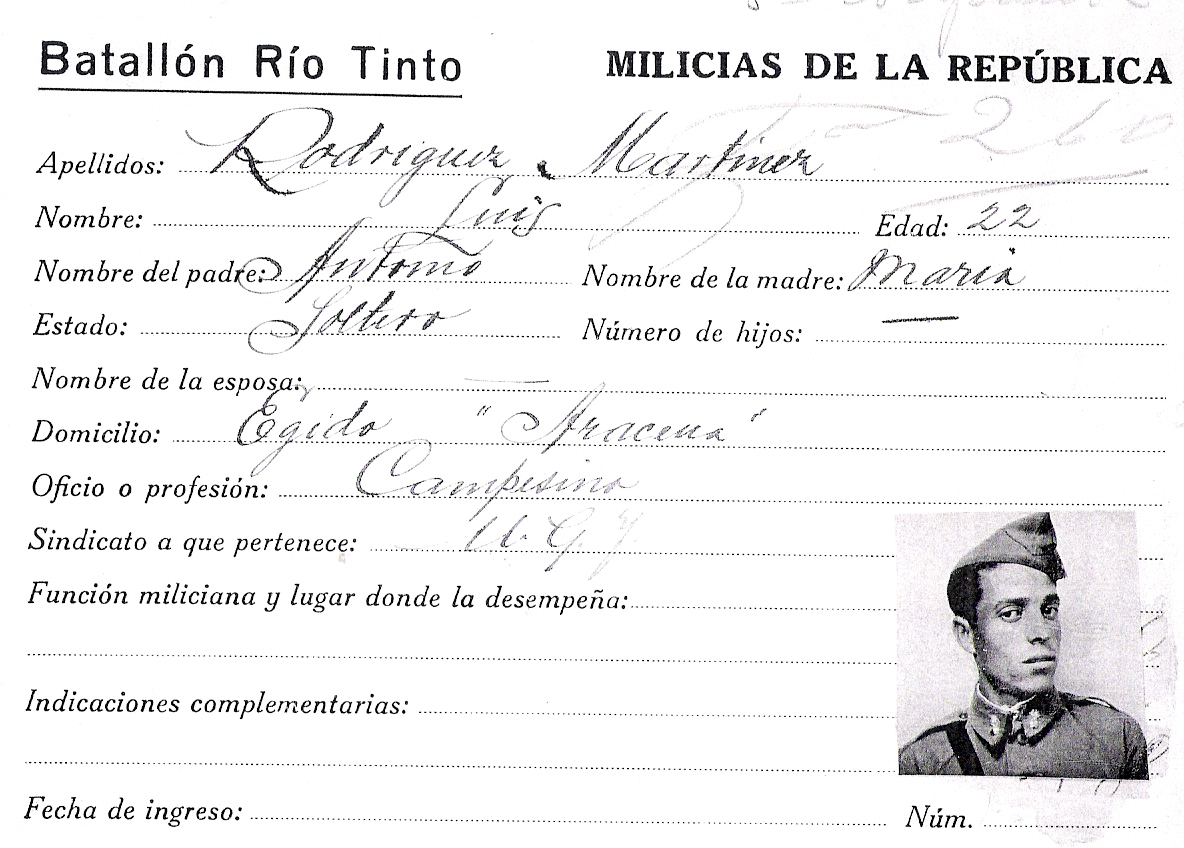 Batallón Río Tinto MILICIAS DE LA REPÚBLICA
260
Apellidos: Rodriguez Martinez
Nombre: Luis Edad: 22
Nombre del padre: Antonio Nombre de la madre: Maria
Estado: Soltero Número de hijos: —
Nombre de la esposa: —
Domicilio: Egido "Aracena"
Oficio o profesión: Campesino
Sindicato a que pertenece: U.G.T.
Función miliciana y lugar donde la desempeña:
Indicaciones complementarias:
Fecha de ingreso: Núm.